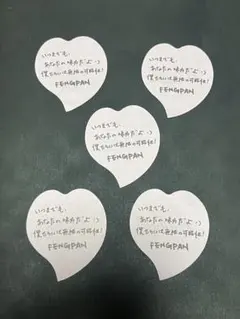 いつまでも、
あなたの味方だよ :)
僕たちには無限の可能性!
FENGPAN
いつまでも、
あなたの味方だよ :)
僕たちには無限の可能性!
FENGPAN
いつまでも、
あなたの味方だよ :)
僕たちには無限の可能性!
FENGPAN
いつまでも、
あなたの味方だよ :)
僕たちには無限の可能性!
FENGPAN
いつまでも、
あなたの味方だよ :)
僕たちには無限の可能性!
FENGPAN